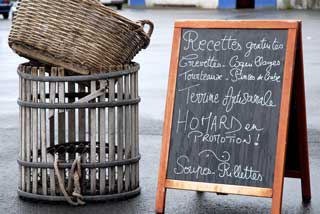 Recettes gratuites
Crevettes - Coquillages
Tourteaux - Pinces de Crabe
Terrine Artisanale
HOMARD en
PROMOTION !
Soupes - Rillettes